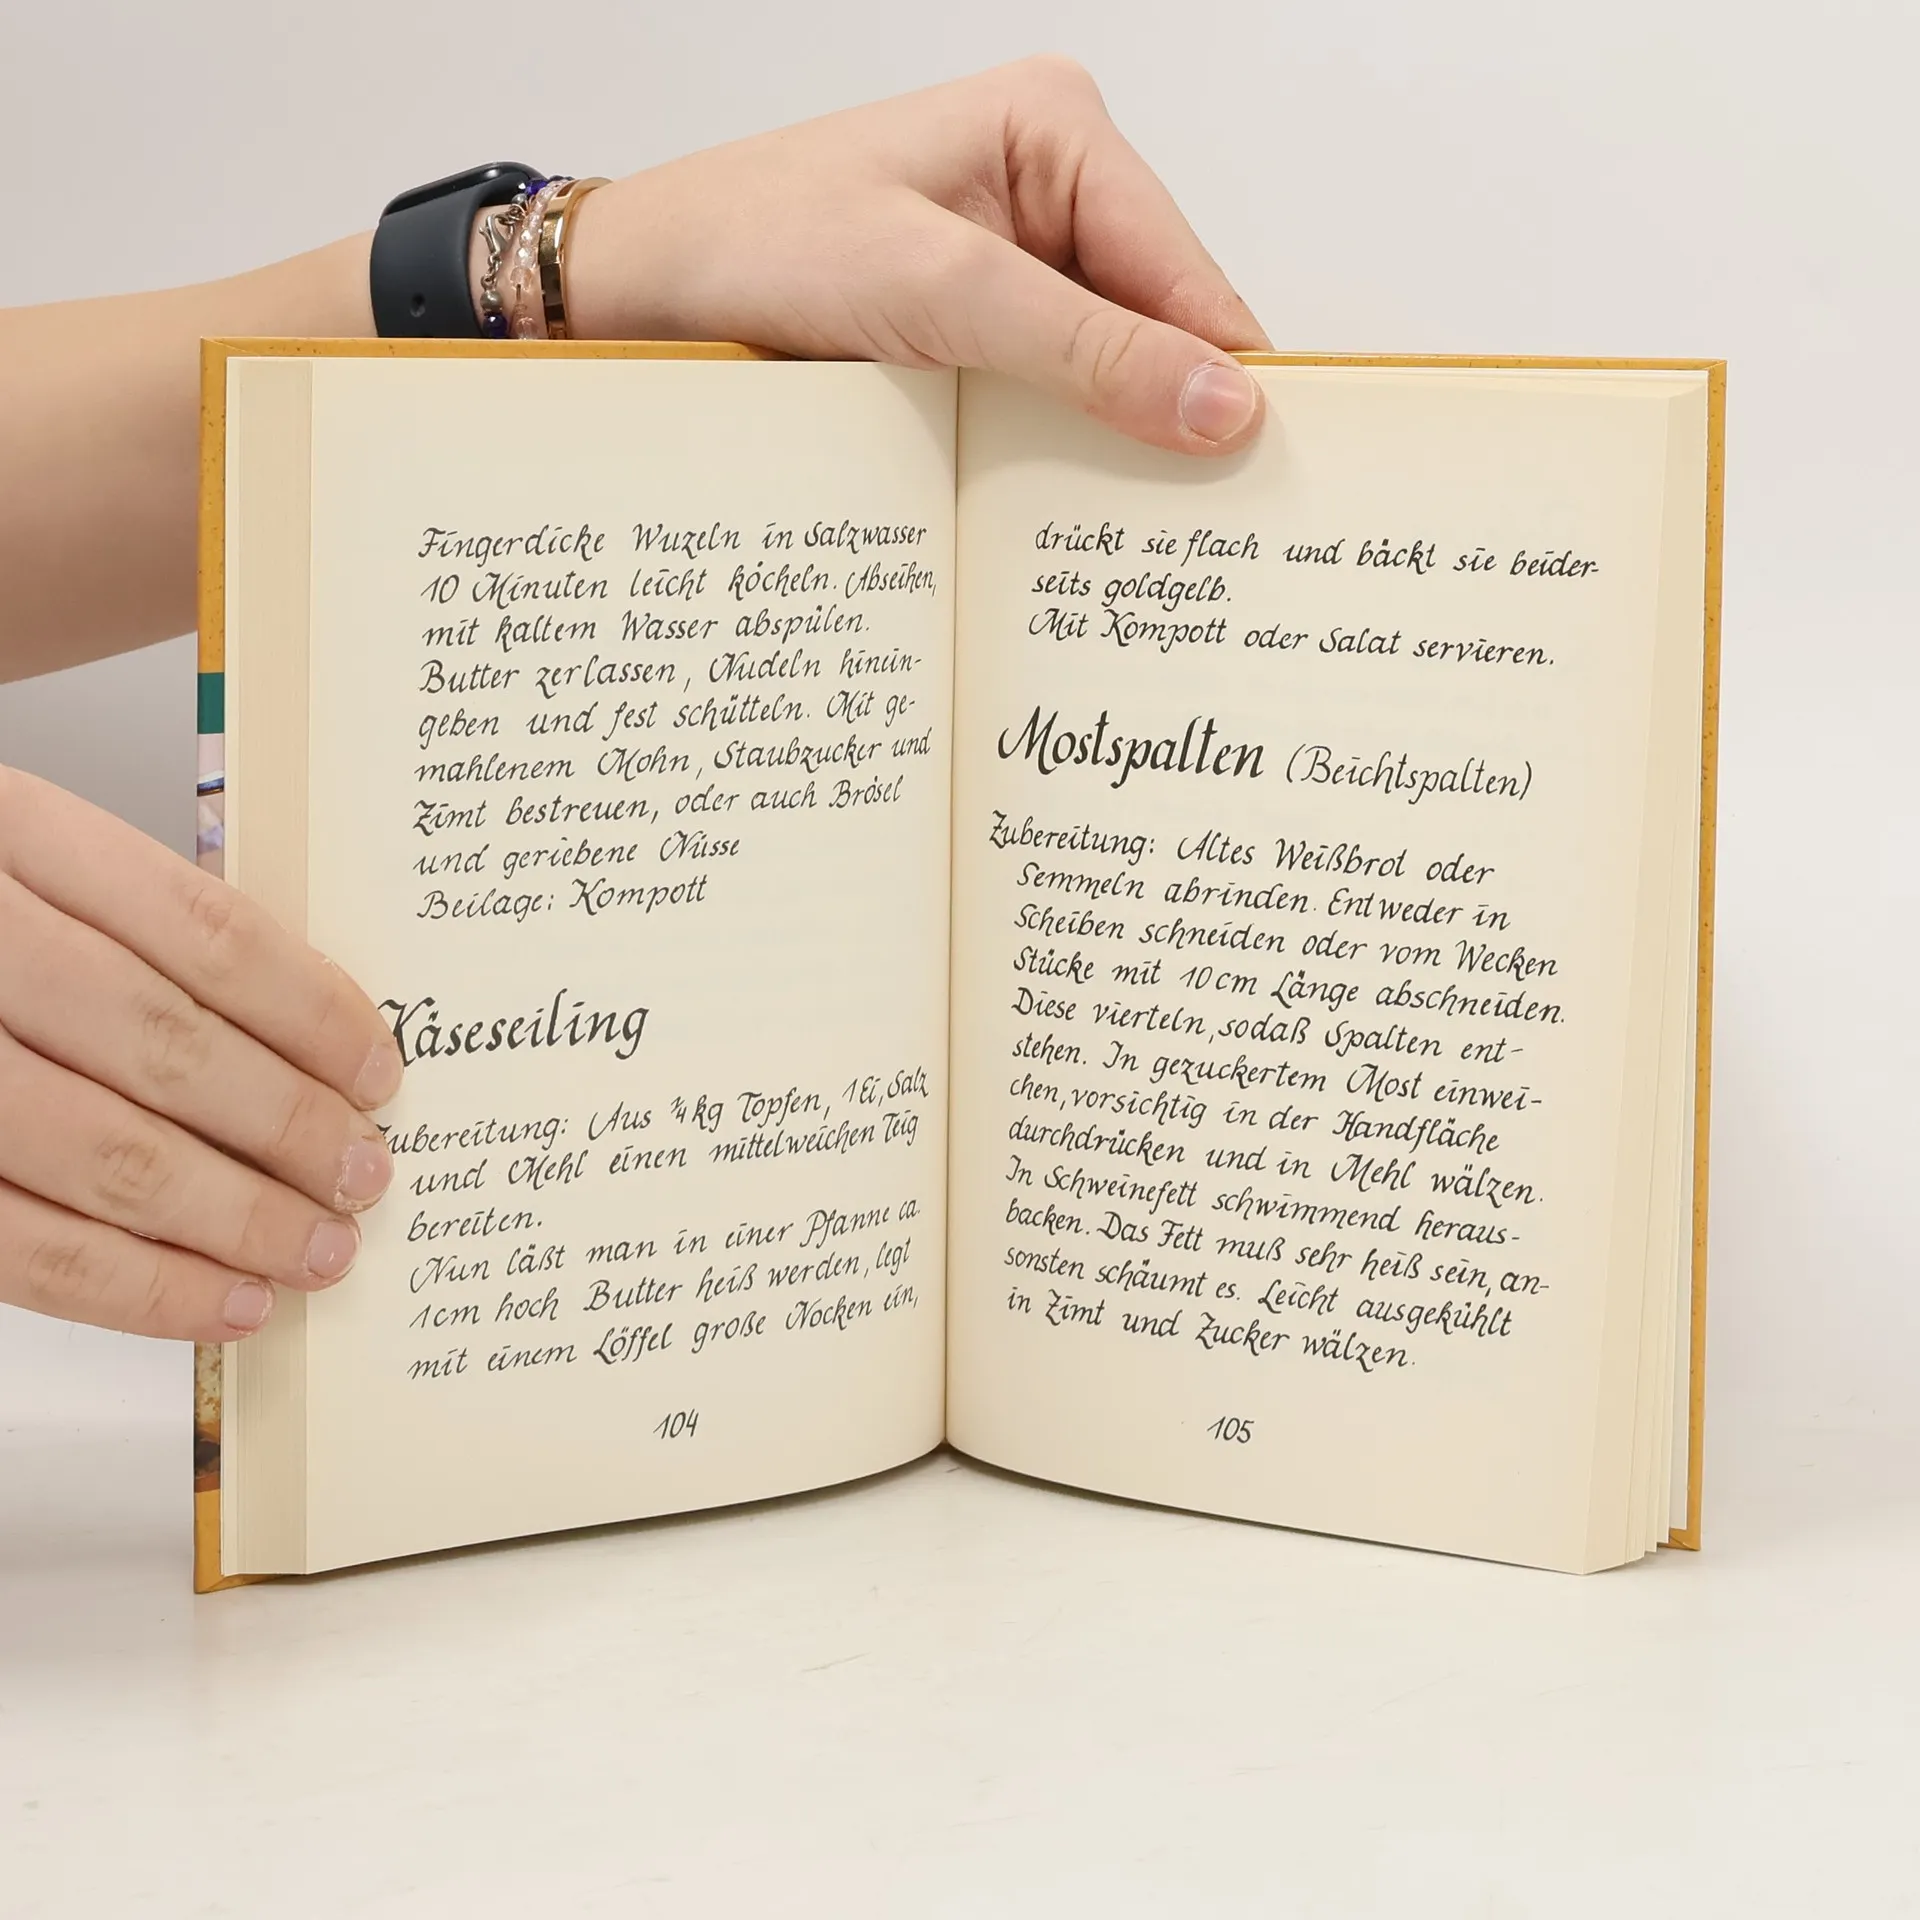 Fingerdicke Wuzeln in Salzwasser
10 Minuten leicht köcheln. Abseihen,
mit kaltem Wasser abspülen.
Butter zerlassen, Nudeln hinein-
geben und fest schütteln. Mit ge-
mahlenem Mohn, Staubzucker und
Zimt bestreuen, oder auch Brösel
und geriebene Nüsse
Beilage: Kompott
Käseseiling
Zubereitung: Aus ¼ kg Topfen, 1 Ei, Salz
und Mehl einen mittelweichen Teig
bereiten.
Nun läßt man in einer Pfanne ca.
1cm hoch Butter heiß werden, legt
mit einem Löffel große Nocken ein,
104
drückt sie flach und bäckt sie beider-
seits goldgelb.
Mit Kompott oder Salat servieren.
Mostspalten (Beichtspalten)
Zubereitung: Altes Weißbrot oder
Semmeln abrinden. Entweder in
Scheiben schneiden oder vom Wecken
Stücke mit 10 cm Länge abschneiden.
Diese vierteln, sodaß Spalten ent-
stehen. In gezuckertem Most einwei-
chen, vorsichtig in der Handfläche
durchdrücken und in Mehl wälzen.
In Schweinefett schwimmend heraus-
backen. Das Fett muß sehr heiß sein, an-
sonsten schäumt es. Leicht ausgekühlt
in Zimt und Zucker wälzen.
105